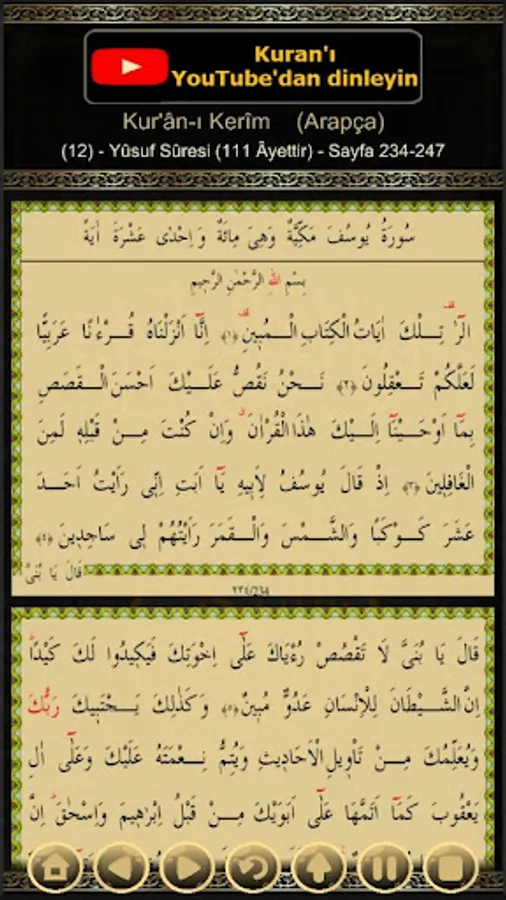 Kuran'ı
YouTube'dan dinleyin
Kur'ân-ı Kerîm (Arapça)
(12) - Yûsuf Sûresi (111 Âyettir) - Sayfa 234-247
سُورَةُ يُوسُفَ مَكِّيَّةٌ وَهِيَ مِائَةٌ وَاِحْدٰى عَشْرَةَ اٰيَةً
بِسْمِ اللهِ الرَّحْمٰنِ الرَّحِيمِ
الٓرٰ تِلْكَ اٰيَاتُ الْكِتَابِ الْمُبِينِ ﴿١﴾ اِنَّٓا اَنْزَلْنَاهُ قُرْءٰنًا عَرَبِيًّا
لَعَلَّكُمْ تَعْقِلُونَ ﴿٢﴾ نَحْنُ نَقُصُّ عَلَيْكَ اَحْسَنَ الْقَصَصِ
بِمَٓا اَوْحَيْنَٓا اِلَيْكَ هٰذَا الْقُرْاٰنَ وَاِنْ كُنْتَ مِنْ قَبْلِهِ لَمِنَ
الْغَافِلِينَ ﴿٣﴾ اِذْ قَالَ يُوسُفُ لِاَبِيهِ يَٓا اَبَتِ اِنِّى رَاَيْتُ اَحَدَ
عَشَرَ كَوْكَبًا وَالشَّمْسَ وَالْقَمَرَ رَاَيْتُهُمْ لِى سَاجِدِينَ ﴿٤﴾
قَالَ يَا بُنَىَّ
٢٣٤/234
قَالَ يَا بُنَىَّ لَا تَقْصُصْ رُءْيَاكَ عَلٰٓى اِخْوَتِكَ فَيَكِيدُوا لَكَ كَيْدًا
اِنَّ الشَّيْطَانَ لِلْاِنْسَانِ عَدُوٌّ مُبِينٌ ﴿٥﴾ وَكَذٰلِكَ يَجْتَبِيكَ رَبُّكَ
وَيُعَلِّمُكَ مِنْ تَاْوِيلِ الْاَحَادِيثِ وَيُتِمُّ نِعْمَتَهُ عَلَيْكَ وَعَلٰٓى اٰلِ
يَعْقُوبَ كَمَٓا اَتَمَّهَا عَلٰٓى اَبَوَيْكَ مِنْ قَبْلُ اِبْرٰهِيمَ وَاِسْحٰقَ اِنَّ